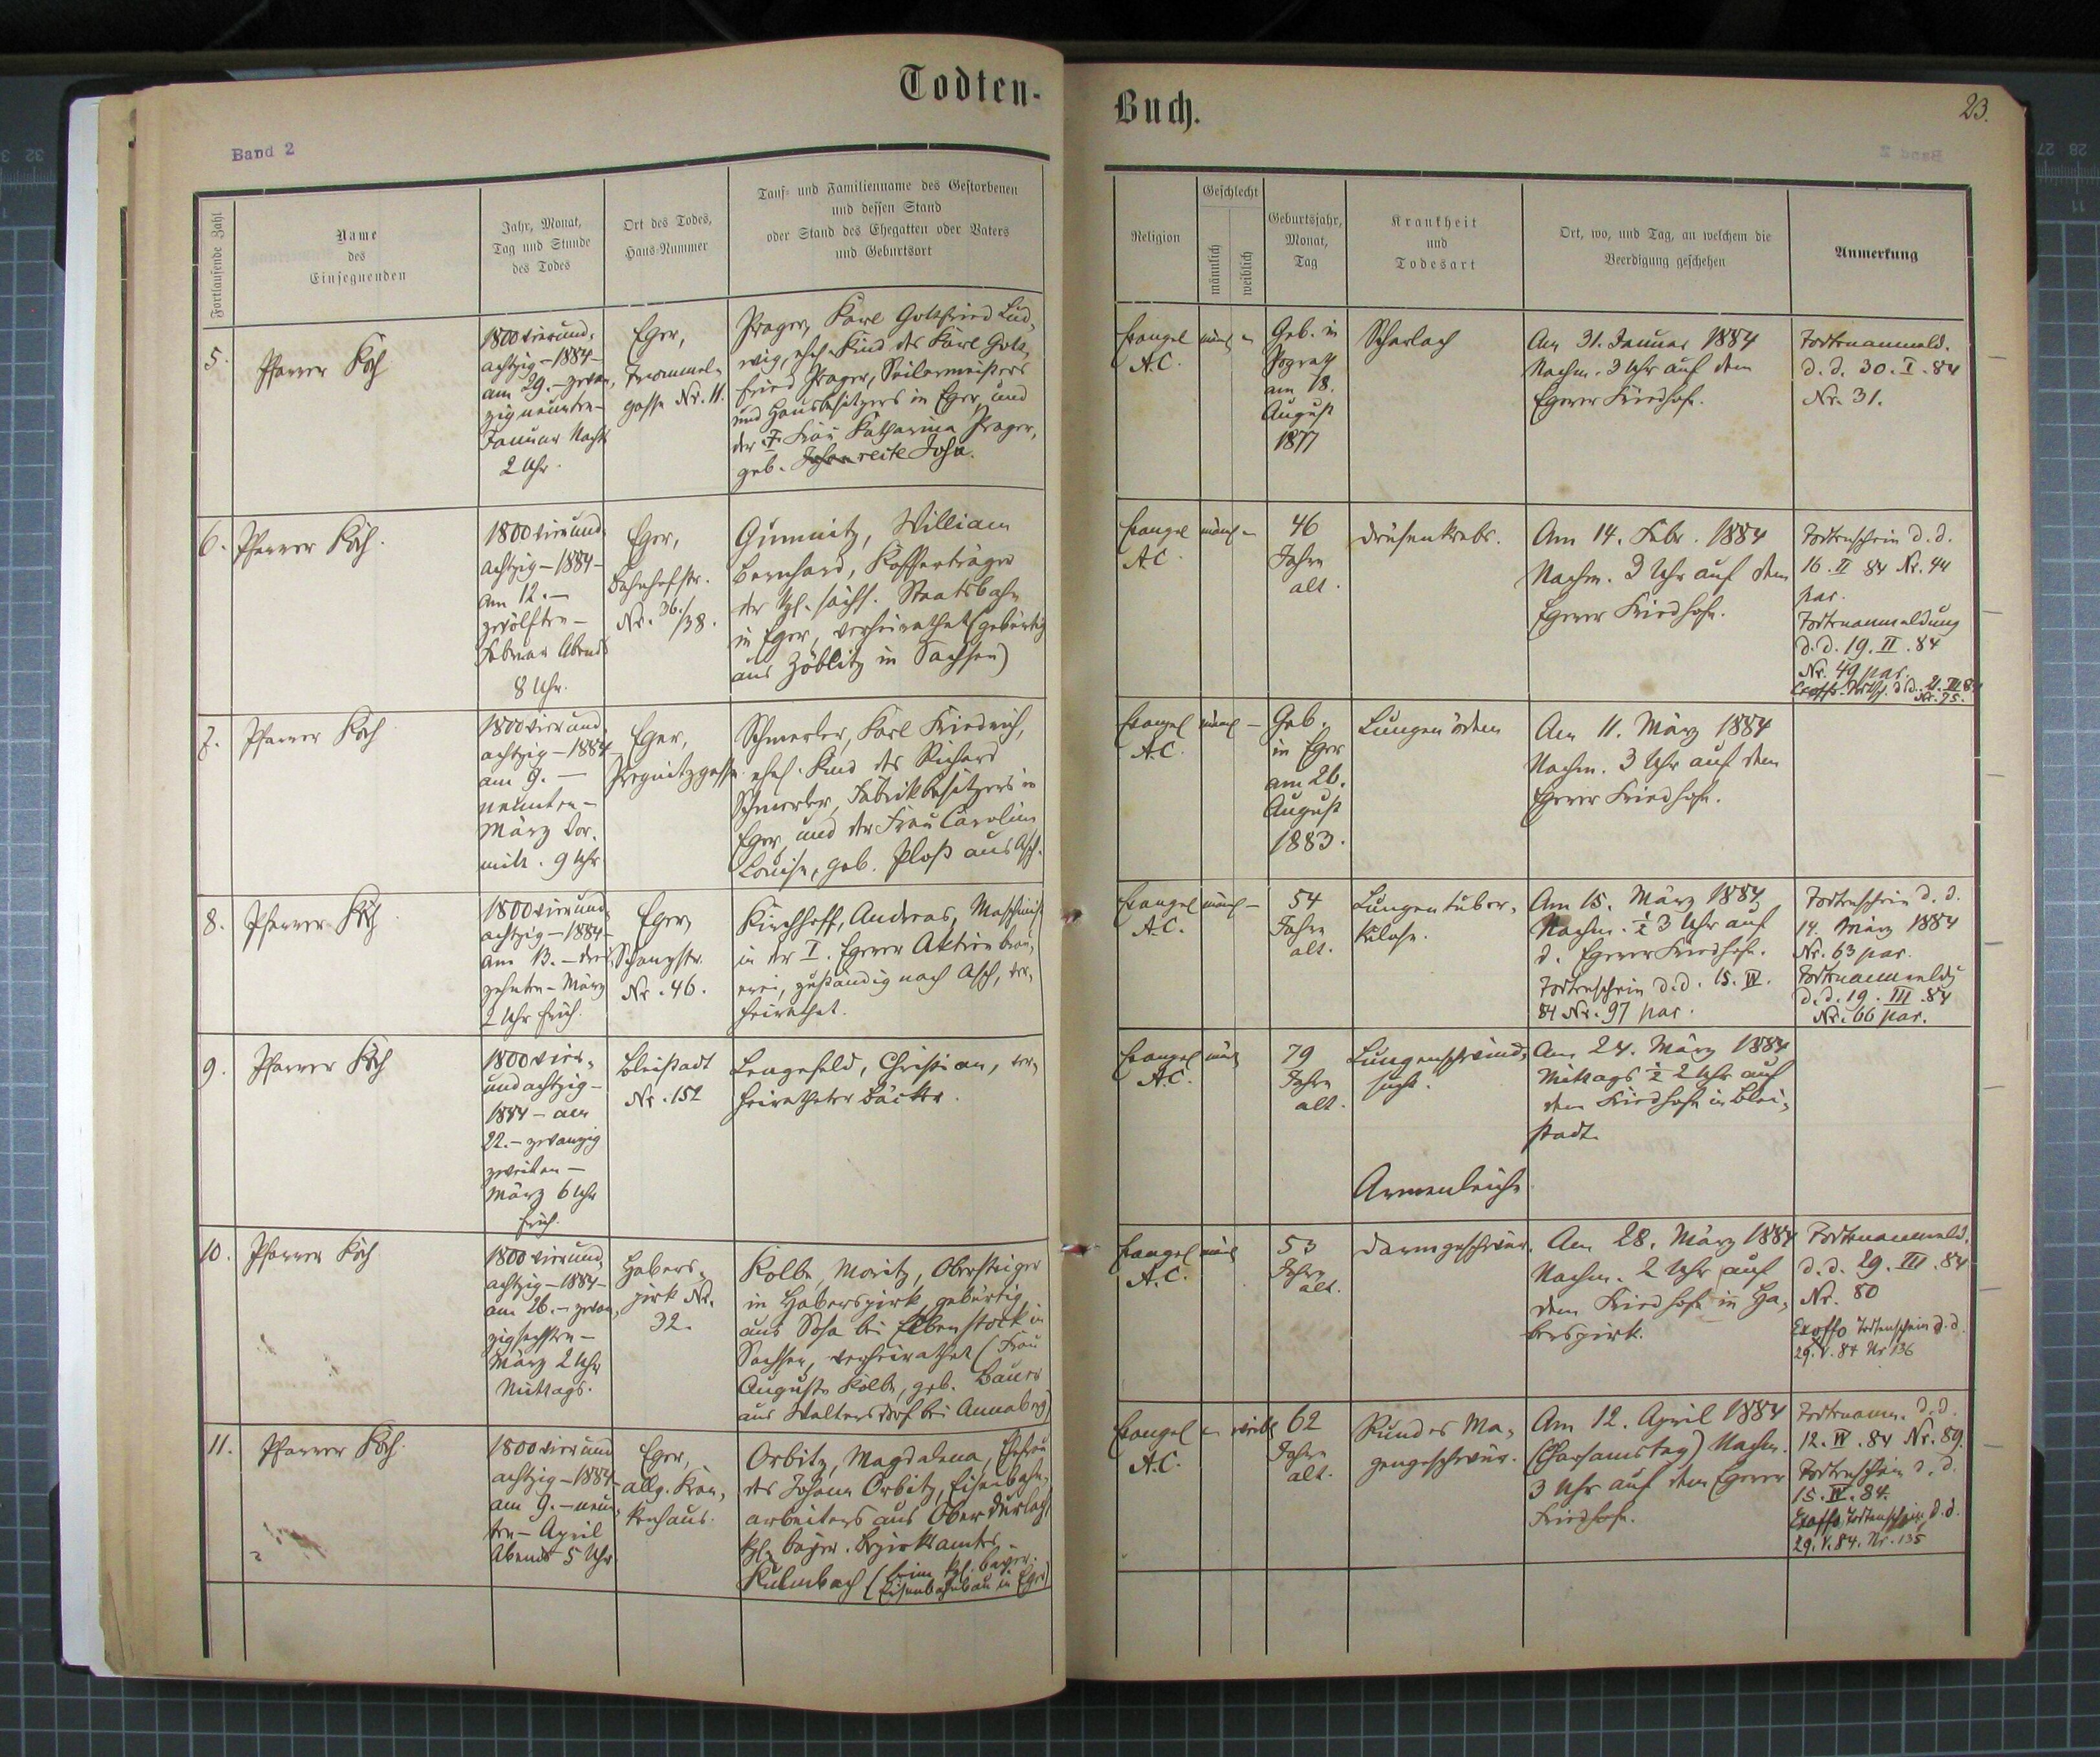 Todten-
Buch.
23.
Band 2
Fortlaufende Zahl
Name
des
Einsegnenden
Jahr, Monat,
Tag und Stunde
des Todes
Ort des Todes,
Haus-Nummer
Tauf- und Familienname des Gestorbenen
und dessen Stand
oder Stand des Ehegatten oder Vaters
und Geburtsort
Religion
Geschlecht
männlich
weiblich
Geburtsjahr,
Monat,
Tag
Krankheit
und
Todesart
Ort, wo, und Tag, an welchem die
Beerdigung geschehen
Anmerkung
5.
Pfarrer Koch
1800 vierund-
achtzig – 1884 –
am 29. – zwan-
zigneunten –
Januar Nachts
2 Uhr.
Eger,
Trommel-
gasse Nr. 11.
Prager, Karl Gottfried Lud-
wig, ehel. Kind des Karl Gott-
fried Prager, Seilermeisters
und Hausbesitzers in Eger und
der † Frau Katharina Prager,
geb. reite John.
Evangel
A.C.
männl –
Geb. in
Pograth
am 18.
August
1877
Scharlach
Am 31. Januar 1884
Nachm. 3 Uhr auf dem
Egerer Friedhofe.
Todtenanmeld.
d. d. 30. I. 84
Nr. 31.
6.
Pfarrer Koch.
1800 vierund-
achtzig – 1884 –
am 12. –
zwölften –
Februar Abends
8 Uhr.
Eger,
Bahnhofstr.
Nr. 36./38.
Gumnitz, William
Bernhard, Kofferträger
der kgl. sächs. Staatsbahn
in Eger, verheirathet (gebürtig
aus Zöblitz in Sachsen)
Evangel
A.C.
männl –
46
Jahre
alt.
Drüsenkrebs.
Am 14. Febr. 1884
Nachm. 3 Uhr auf dem
Egerer Friedhofe.
Todtenschein d. d.
16. II 84 Nr. 44
par.
Todtenanmeldung
d. d. 19. II. 84
Nr. 49 par.
Exoffo. d. d. 21. III 84
Nr. 75.
7.
Pfarrer Koch
1800 vierund
achtzig – 1884
am 9. –
neunten –
März Vor-
mitt. 9 Uhr
Eger,
Pregnitzgasse
Schmerler, Karl Friedrich,
ehel. Kind des Richard
Schmerler, Fabrikbesitzers in
Eger und der Frau Carolina
Louise, geb. Ploß aus Asch.
Evangel
A.C.
männl –
Geb.
in Eger
am 26.
August
1883.
Lungenödem
Am 11. März 1884
Nachm. 3 Uhr auf dem
Egerer Friedhofe.
8.
Pfarrer Koch
1800 vierund-
achtzig – 1884 –
am 13. – drei-
zehnten – März
2 Uhr früh.
Eger,
Schanzstr.
Nr. 46.
Kirchhoff, Andreas, Maschinist
in der I. Egerer Aktienbrau-
erei, zuständig nach Asch, ver-
heirathet.
Evangel
A.C.
männl –
54
Jahre
alt.
Lungentuber-
kulose.
Am 15. März 1884
Nachm. ½ 3 Uhr auf
d. Egerer Friedhofe.
Todtenschein d. d. 15. IV.
84 Nr. 97 par.
Todtenschein d. d.
14. März 1884
Nr. 63 par.
Todtenanmeldg
d. d. 19. III. 84
Nr. 66 par.
9.
Pfarrer Koch
1800 vier-
undachtzig –
1884 – am
22. – zwanzig
zweiten –
März 6 Uhr
früh.
Bleistadt
Nr. 152
Lengefeld, Christian, ver-
heiratheter Bäcker.
Evangel
A.C.
männl
79
Jahre
alt.
Lungenschwind-
sucht.
Armenleiche
Am 24. März 1884
Mittags ½ 2 Uhr auf
dem Friedhofe in Blei-
stadt.
10.
Pfarrer Koch
1800 vierund
achtzig – 1884 –
am 26. – zwan-
zigsechsten –
März 2 Uhr
Mittags.
Habers-
pirk Nr.
32.
Kolbe, Moritz, Obersteiger
in Haberspirk, gebürtig
aus Sosa bei Eibenstock in
Sachsen, verheirathet (Frau
Auguste Kolbe, geb. Bauer
aus Waltersdorf bei Annaberg)
Evangel
A.C.
männl
53
Jahre
alt.
Darmgeschwür.
Am 28. März 1884
Nachm. 2 Uhr auf
dem Friedhofe in Ha-
berspirk.
Todtenanmeld.
d. d. 29. III. 84
Nr. 80
Exoffo Todtenschein d. d.
29. V. 84 Nr 136
11.
Pfarrer Koch.
1800 vierund
achtzig – 1884 –
am 9. – neun-
ten – April
Abends 5 Uhr
Eger,
allg. Kran-
kenhaus.
Orbitz, Magdalena, Ehefrau
des Johann Orbitz, Eisenbahn-
arbeiters aus Oberdürlach
kgl. bayer. Bezirksamtes
Kulmbach (beim kgl. bayer.
Eisenbahnbau in Eger)
Evangel
A.C.
– weibl
62
Jahre
alt.
Rundes Ma-
gengeschwür.
Am 12. April 1884
(Charsamstag) Nachm.
3 Uhr auf dem Egerer
Friedhofe.
Todtenanm. d. d.
12. IV. 84 Nr. 89.
Todtenschein d. d.
15. IV. 84.
Exoffo Todtenschein d. d.
29. V. 84. Nr. 135